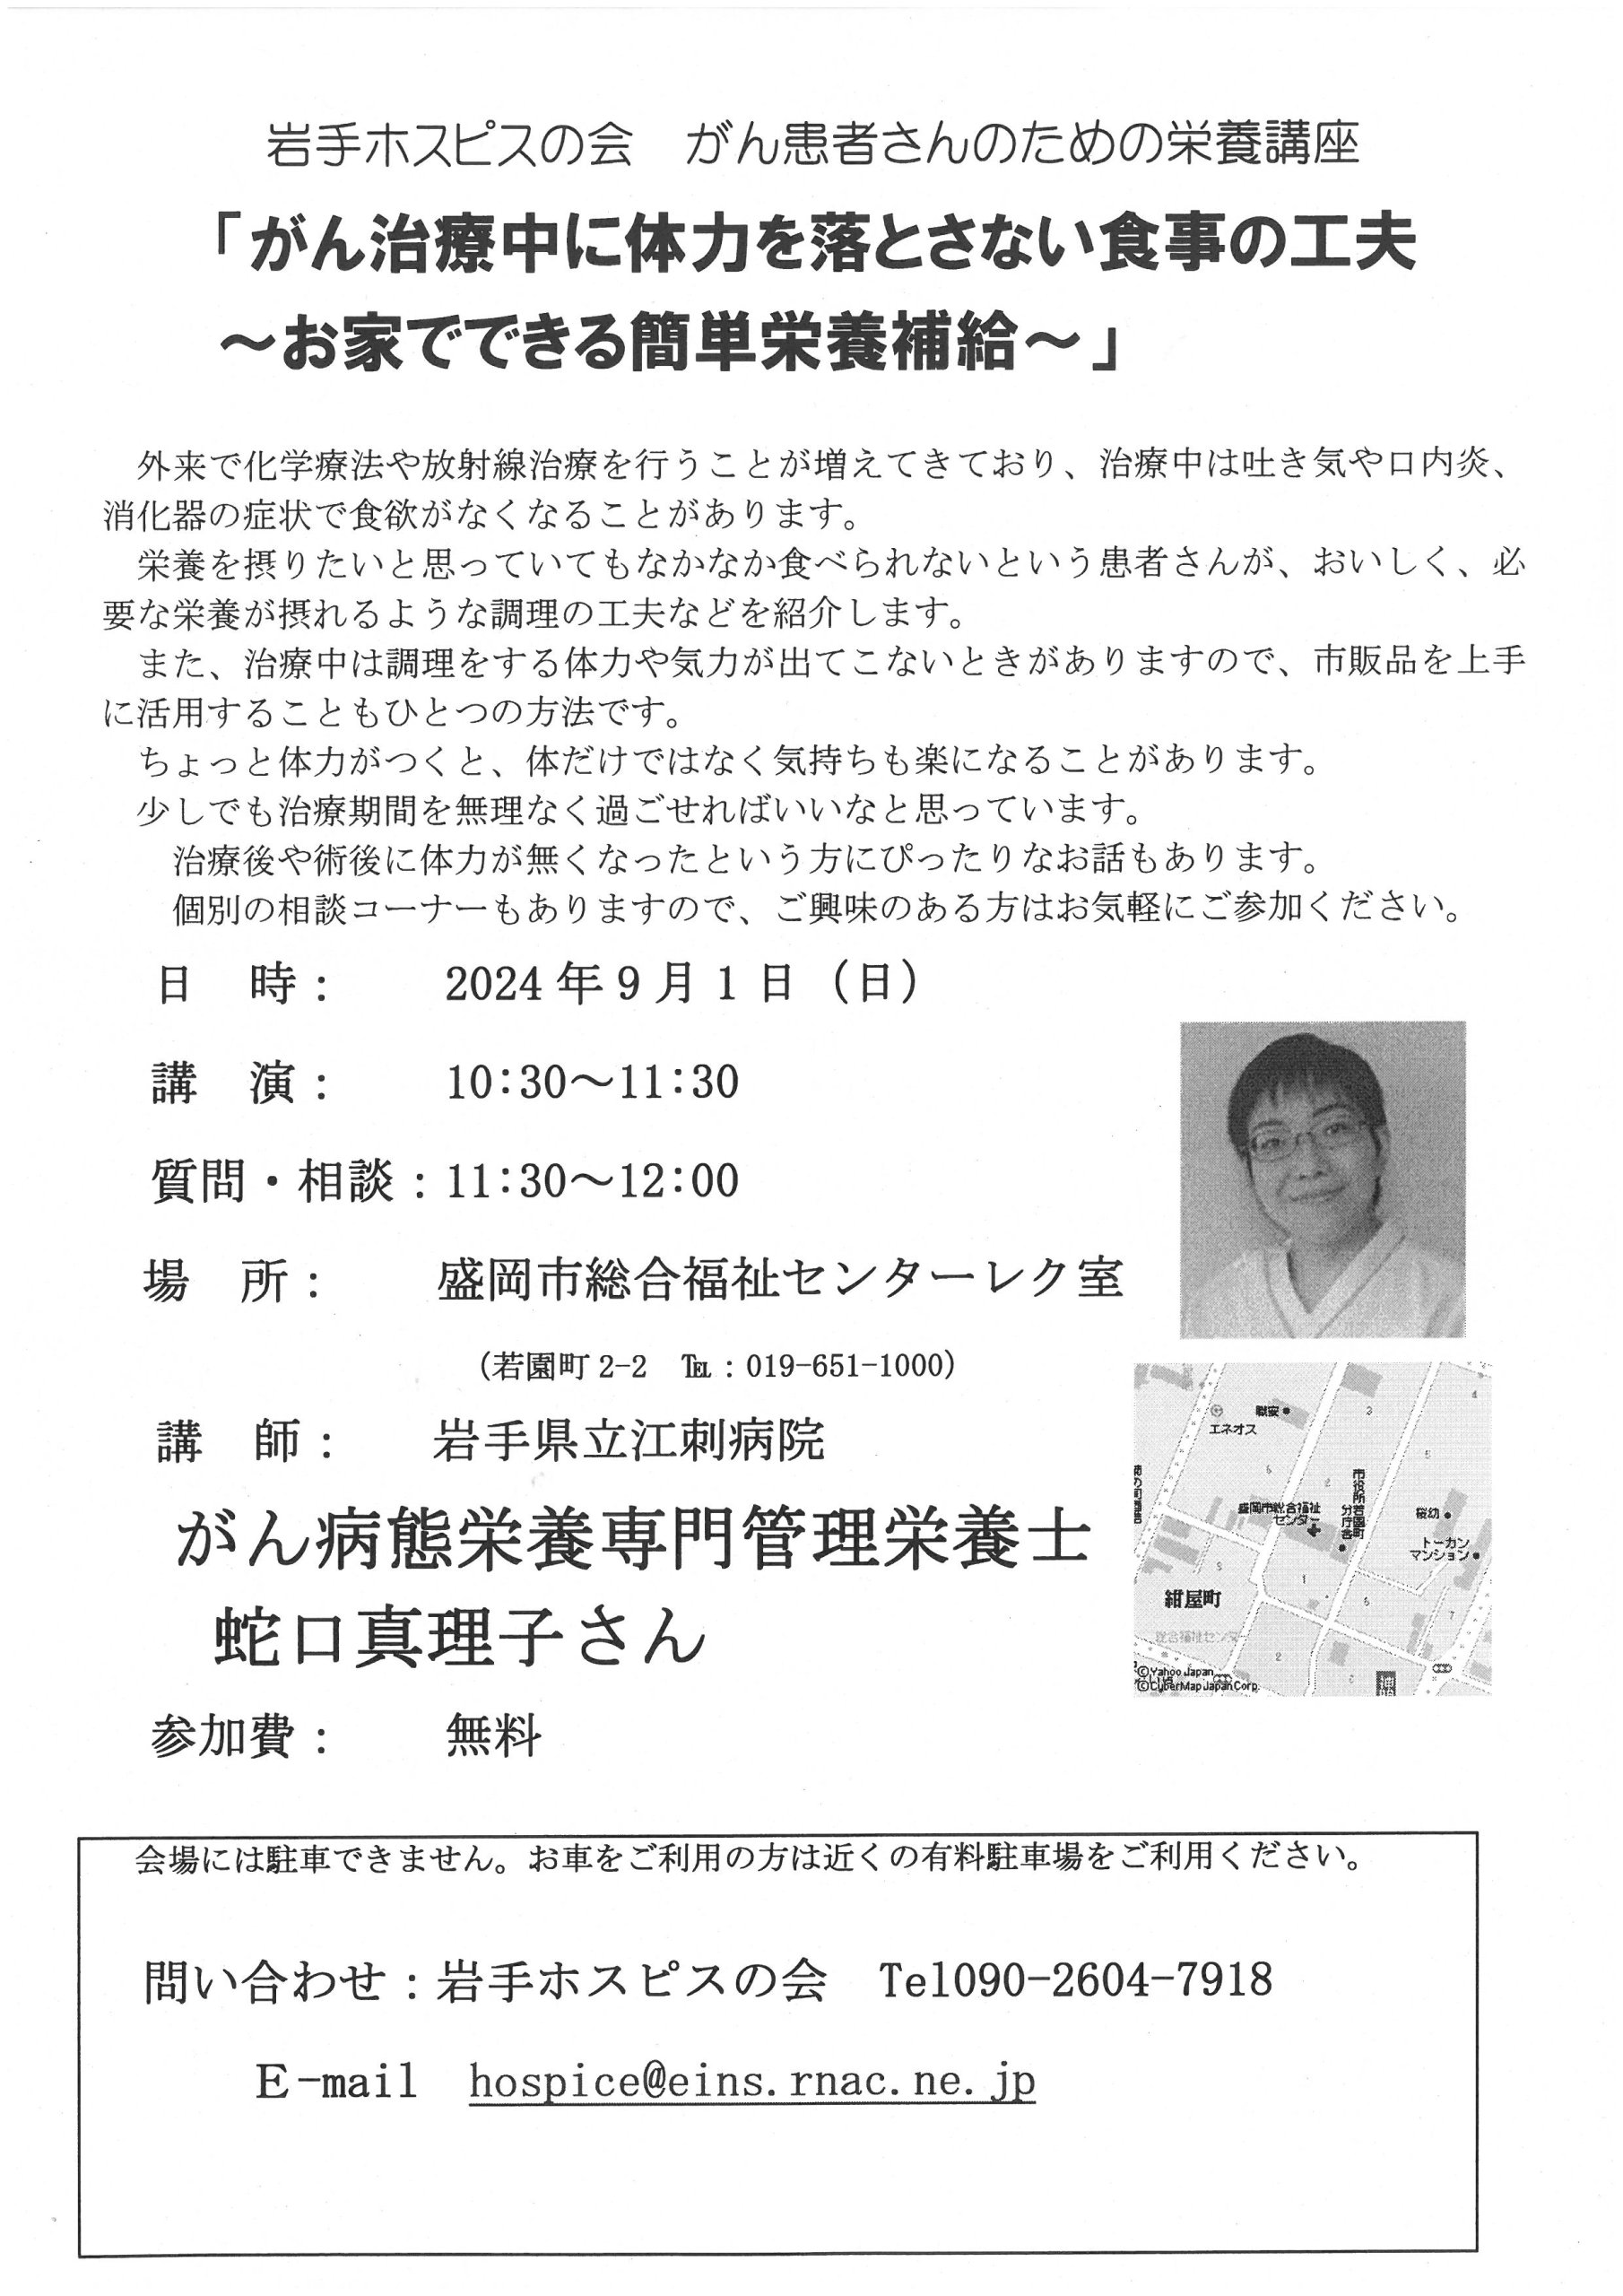 岩手ホスピスの会　がん患者さんのための栄養講座
「がん治療中に体力を落とさない食事の工夫
～お家でできる簡単栄養補給～」
外来で化学療法や放射線治療を行うことが増えてきており、治療中は吐き気や口内炎、
消化器の症状で食欲がなくなることがあります。
栄養を摂りたいと思っていてもなかなか食べられないという患者さんが、おいしく、必
要な栄養が摂れるような調理の工夫などを紹介します。
また、治療中は調理をする体力や気力が出てこないときがありますので、市販品を上手
に活用することもひとつの方法です。
ちょっと体力がつくと、体だけではなく気持ちも楽になることがあります。
少しでも治療期間を無理なく過ごせればいいなと思っています。
治療後や術後に体力が無くなったという方にぴったりなお話もあります。
個別の相談コーナーもありますので、ご興味のある方はお気軽にご参加ください。
日　時：　2024年9月1日（日）
講　演：　10:30～11:30
質問・相談：11:30～12:00
場　所：　盛岡市総合福祉センターレク室
（若園町2-2　℡：019-651-1000）
講　師：　岩手県立江刺病院
がん病態栄養専門管理栄養士
蛇口真理子さん
参加費：　無料
職安
エネオス
3
4
5
6
2
盛岡市総合福祉
センター
市役所若園町
分庁舎
桜幼
トーカン
マンション
紺屋町
1
6
7
総合福祉センタ
2
©Yahoo Japan
©CyberMap Japan Corp.
会場には駐車できません。お車をご利用の方は近くの有料駐車場をご利用ください。
問い合わせ：岩手ホスピスの会　Tel090-2604-7918
E-mail　hospice@eins.rnac.ne.jp